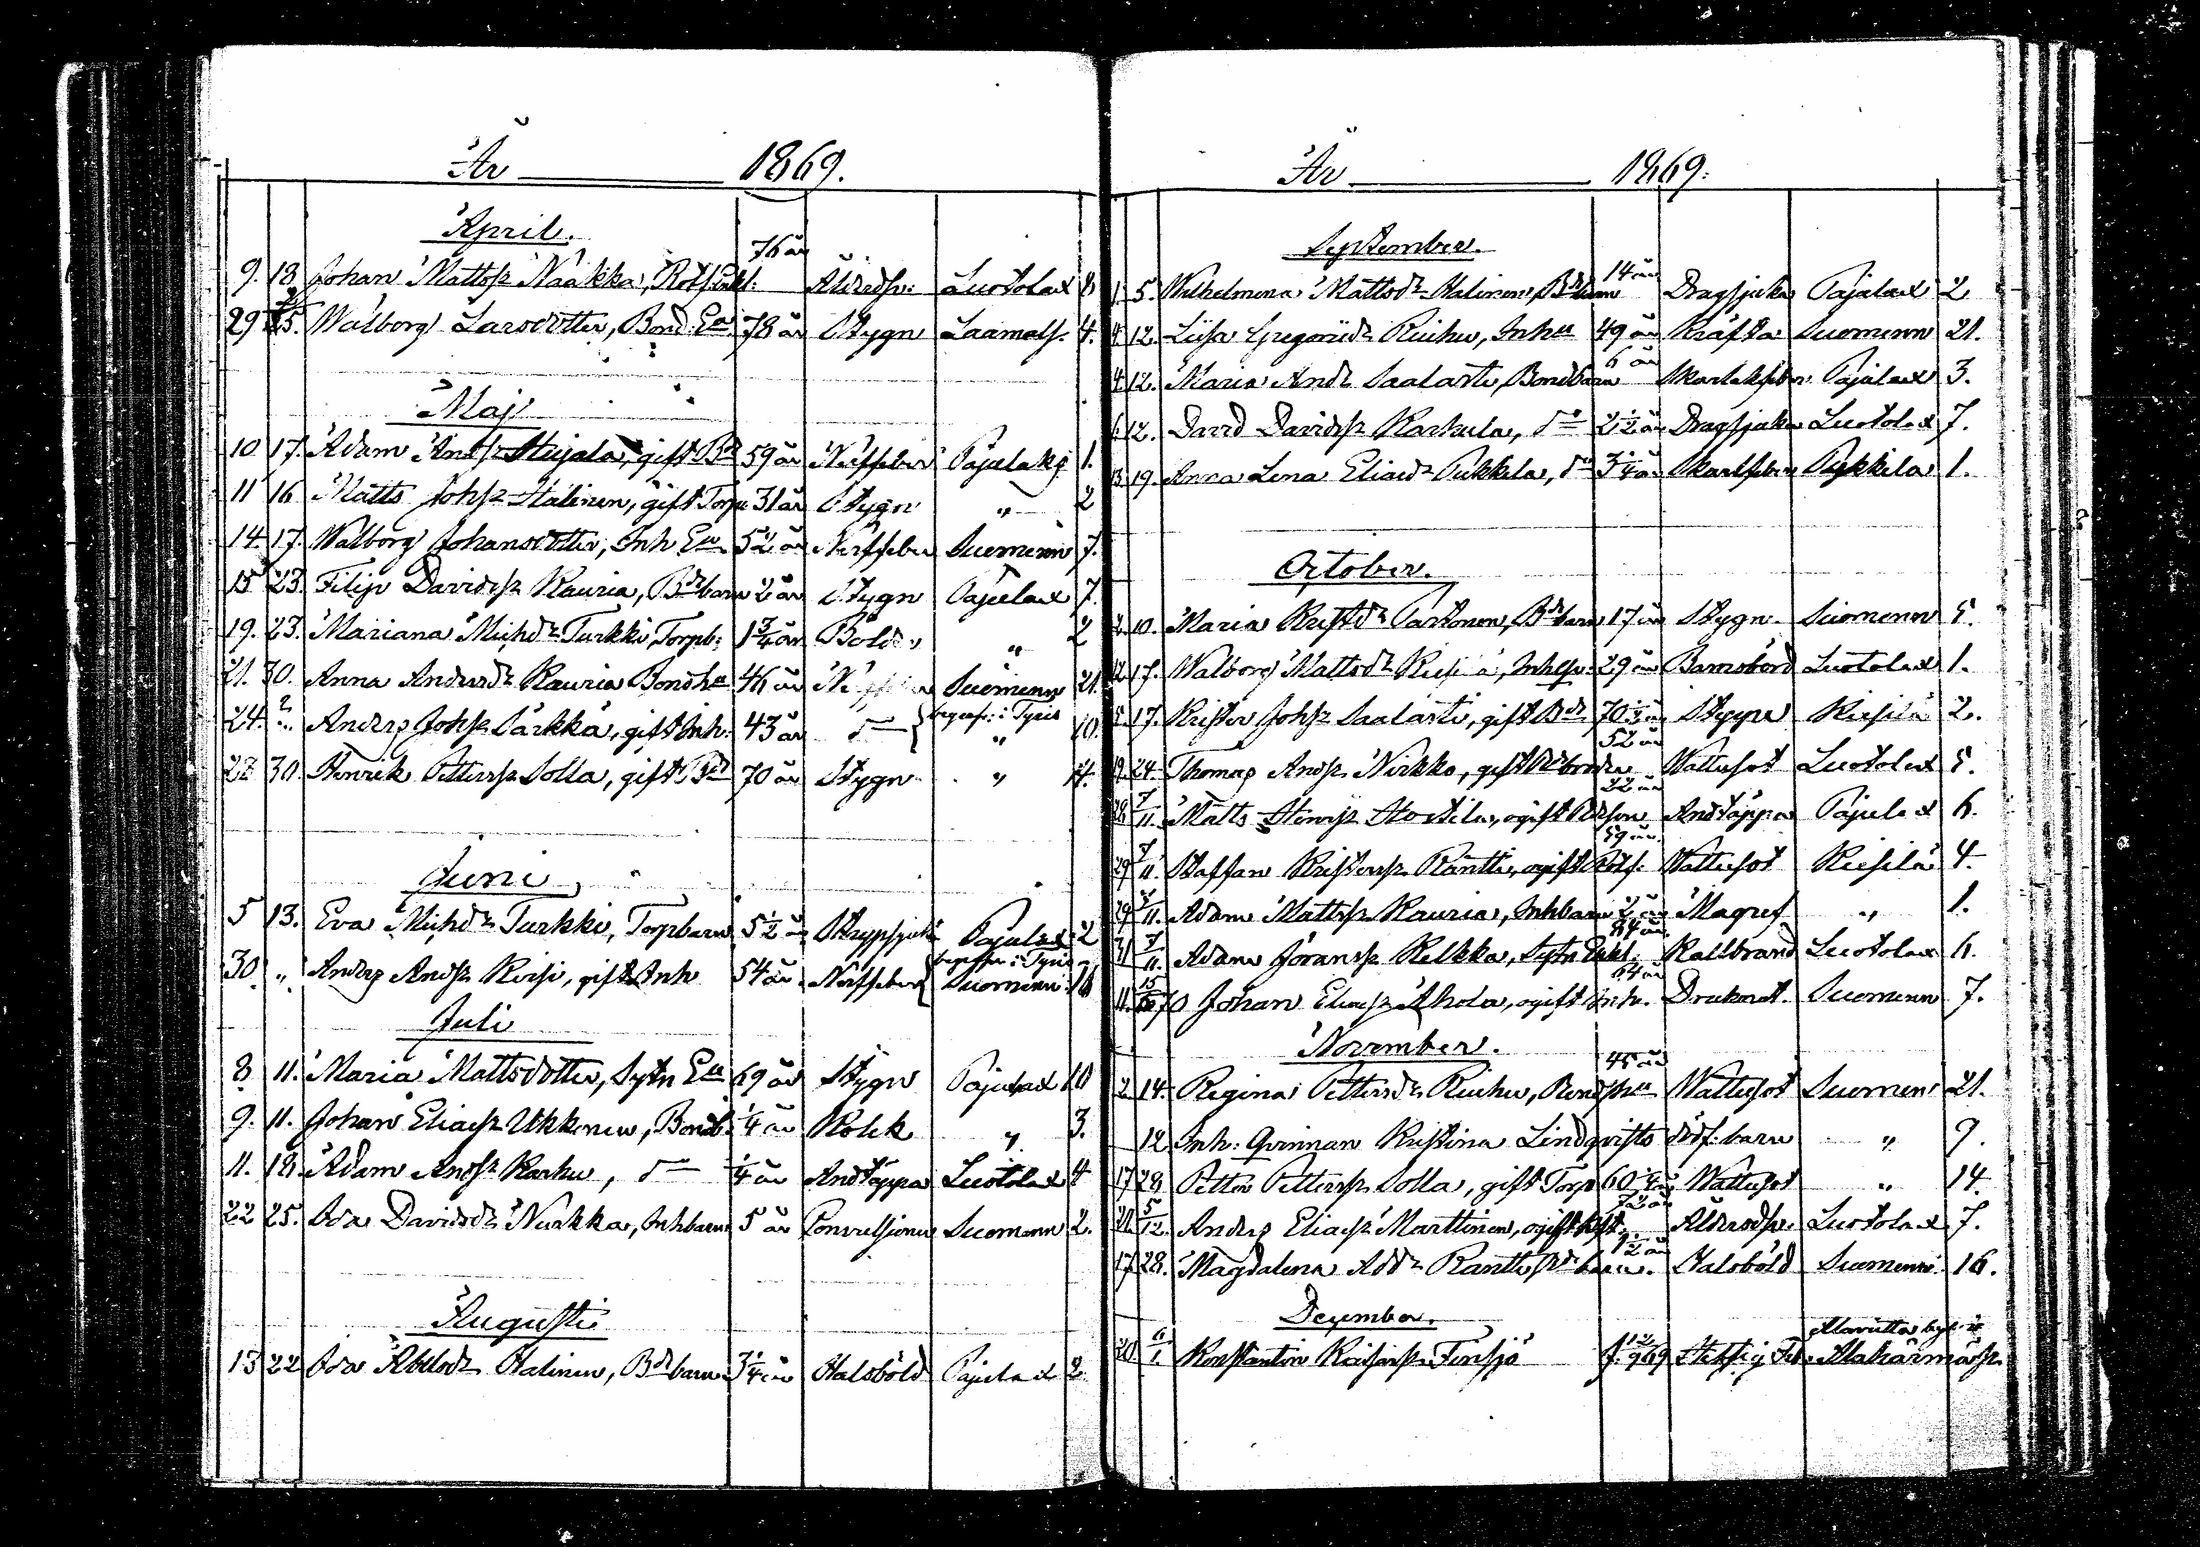 År 1869.
April.
9. 18. Johan Mattsp Naakka, Rotf. Inh. 76 år Ålderds: Luotolax 8
29 25. Walborg Larsdotter, Bond. Ea 78 år Stygn Laamals. 4.
Maj
10 17. Adam Andsp Hujala, gift Bd 59 år Nerffeber Pajulaks 1.
11 16 Matts Johsp Halinen, gift Torp 31 år Stygn " 2
14. 17. Walborg Johansdotter, Inh Ea 52 år Nerffeber Suomenn 7.
15 23. Filip Davidsp Kauria, Bdbarn 2 år Stygn Pajulax 7.
19. 23. Mariana Michdr Turkki, Torpb: 1 3/4 år Bölder " 2
21. 30. Anna Andersdr Kauria Bondhu 46 år Suomenn 21.
24. ? Anders Johsp Särkkä, gift Inh. 43 år do begrafv: i Tyris " 10.
22 30. Henrik Pettersp Solla, gift Bd 70 år Stygn " 14.
Juni
5 13. Eva Michdr Turkki, Torpbarn 5 1/2 år Strypsjuk Pajulax 2
30. " Anders Andsp Kirsi, gift Inh 54 år Nerffeber begrafven i Tyris Suomenn 16
Juli
8 11. Maria Mattsdotter, Sytn Ea 69 år Stygn Pajulax 10
9. 11. Johan Eliasp Ukkonen, Bondb. 1/4 år Kolik " 3.
11. 18. Adam Andsp Karhu, do 1/4 år Andtäppa Luotolax 4
22 25. Ida Davidsdr Nurkka, Inhbarn 5 år Convulsioner Suomenn 2.
Augusti
13 22 Ida Abelsdr Halinen, Bdbarn 3 1/4 år Halsböld Pajulax 2
År 1869.
September.
1 5. Wilhelmina Mattsdr Halinen, Bdbarn 14 år Dragsjuka Pajulax 2
4 12. Lisa Gregoriidr Riuhu, Inhu 49 år Kräfta Suomenn 21.
4 12. Maria Anddr Saalasti, Bondbarn 6 år Skarlaksfeber Pajulax 3.
6 12. David Davidsp Karhula, do 2 1/2 år Dragsjuka Luotolax 7.
13 19. Anna Lena Eliaedr Pukkila, do 3 1/4 år Skarlfeber Pykkilä 1.
October.
2 10. Maria Kristdr Partonen, Bdbarn 17 år Stygn Suomenn 5.
12 17. Walborg Mattsdr 29 år Barnsbörd Luotolax 1.
17. Krister Johsp Saalasti, gift Bd 70 år Kiesilä 2.
19. 24. Thomas Andsp Nirkko, gift 52 år Wattusot Luotolax 5.
28 7/11. Matts Henrsp ogift 22 år Andtäppa Pajulax 6.
29 7/11. Staffan Kristersp Räntti, ogift Rotf. 59 år. Wattusot Kiesilä 4.
29 7/11. Adam Mattsp Kauria, Inhbarn 2 år Magref " 1.
31 7/11. Adam Joransp Kelkka, Sytn Enkl. 84 år Kallbrand Luotolax 6.
11. 70 Johan Eliasp Ahola, ogift Inh. 64 år Druknat. Suomenn 7.
November.
2 14. Regina Pettersdr Riuhu, Bondhu 45 år Wattusot Suomenn 21.
12 Inh: Qvinnan Kristina Lindqvists dödf: barn " 9.
17 28 Petter Pettersp Solla, gift Torp 60 1/4 år Wattusot " 14.
21. 5/12. Anders Eliasp Marttinen, ogift 72 år Ålderds. Luotolax 7.
17 28. Magdalena Addr Rantti, Bdbarn. 1/2 år Halsböld Suomenn 16.
December.
20 6/1 Konstantin Finsjö f. 12/9 69 Alakärmä